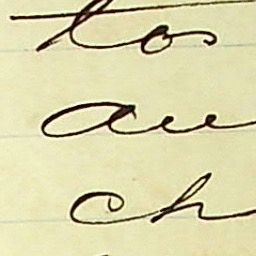 tos
au
ch